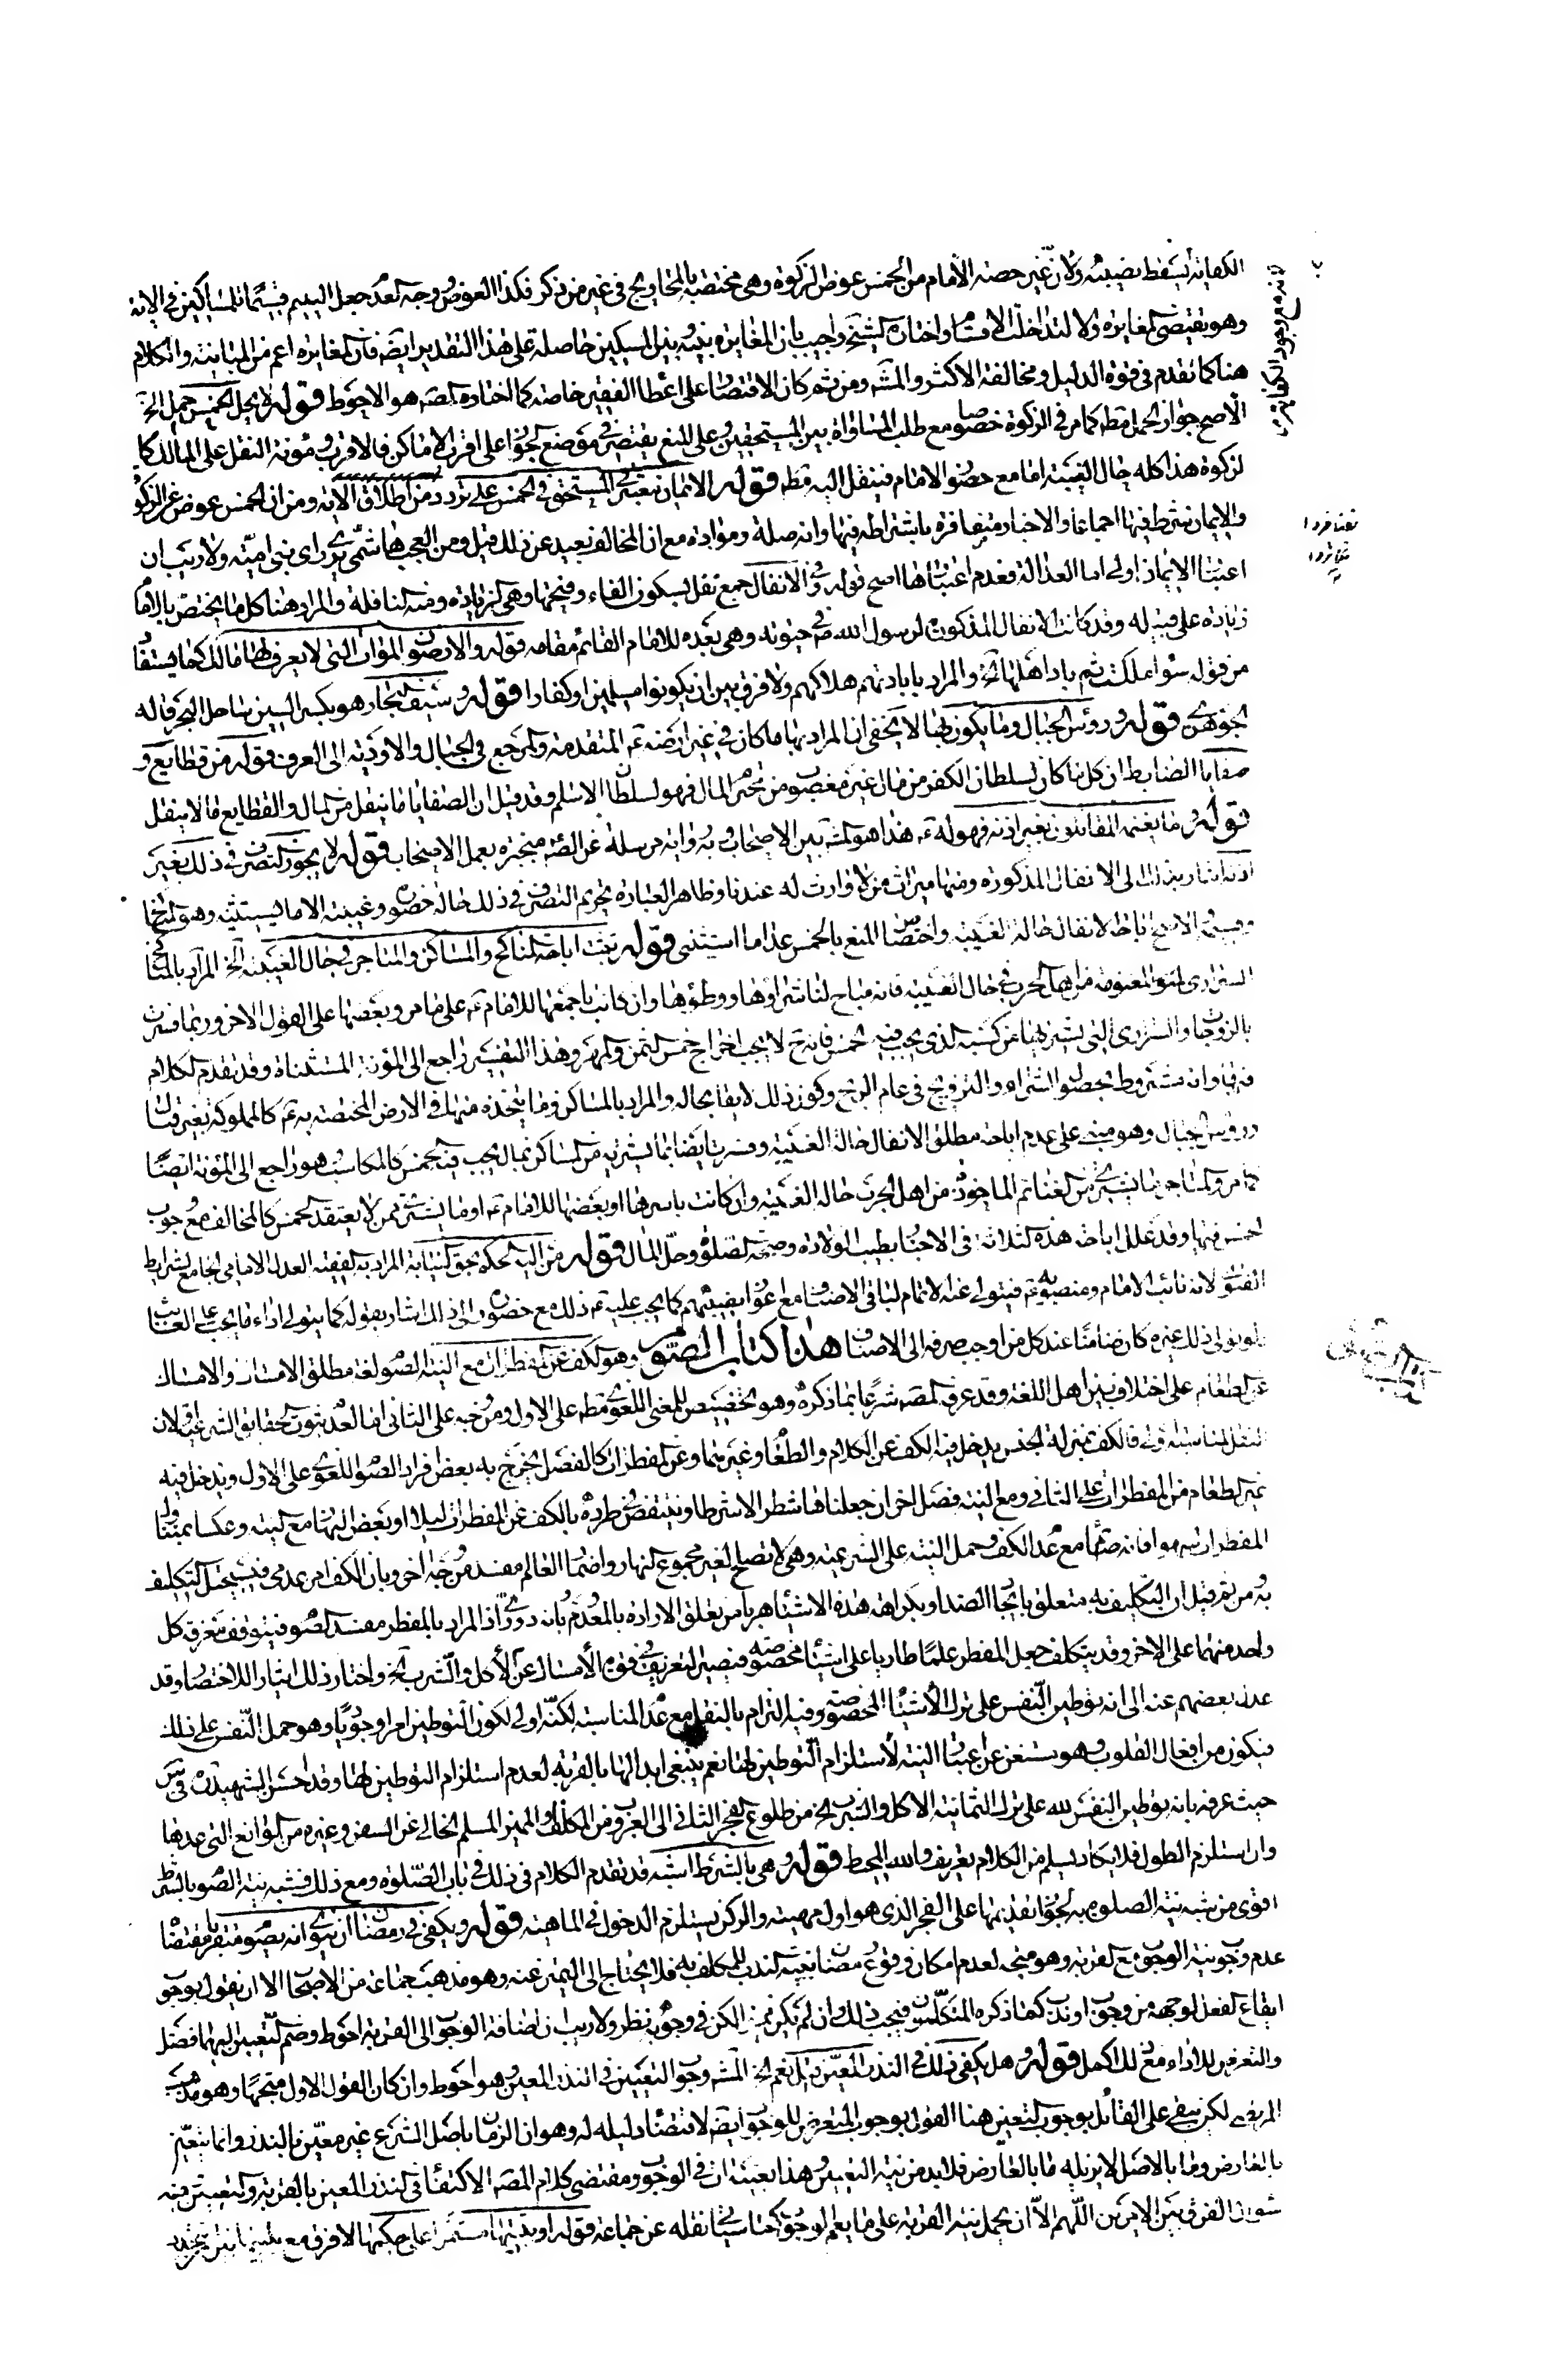 الكفاية يسقط نصيبه ولان غير حصة الامام من الخمس عوض الزكوة وهى مختصة بالمحاويج فى غير من ذكر فكذا العوض وجه العدم جعل اليتيم قسيما للمساكين فى الاية
وهو يقتضى المغايرة والا لتداخلت الاقسام واختاره الشيخ واجيب بان المغايرة بينه وبين المسكين حاصلة على هذا التقدير ايضا فان المغايرة اعم من المباينة والكلام
هنا كما تقدم فى قوة الدليل ومخالفة الاكثر والمش ومن ثم كان الاقتصار على اعطا الفقير خاصة كما اختاره المص هو الاحوط قوله لا يحل الخمس حمل الخ
الاصح جواز الحمل مط كما مر فى الزكوة خصوصا مع طلب المساواة بين المستحقين وعلى المنع يقتصر فى موضع الجواز على اقرب الاماكن فالاقرب ومؤنة النقل على المالك كا
لزكوة هذا كله حال الغيبة اما مع حضور الامام فينقل اليه مط قوله الايمان يعتبر فى المستحق فى الخمس على تردد من اطلاق الاية ومن ان الخمس عوض عن الزكوة
والايمان يشترط فيها اجماعا والاخبار متضافرة باشتراطه فيها وانه صلة وموادة مع ان المخالف بعيد عن ذلك قيل ومن العجب هاشمى يرى راى بنى امية ولا ريب ان
اعتبار الايمان اولى اما العدالة فعدم اعتبارها اصح قوله فى الانفال جمع نفل بسكون الفاء وفتحها وهى الزيادة ومنه النافلة والمراد هنا كل ما يختص بالامام
زيادة على قبيله وقد كانت الانفال المذكورة لرسول الله ص فى حيوته وهى بعده للامام القائم مقامه قوله والارضون الموات التى لا يعرف لها مالك كما يستفاد
من قوله سواء ملكت ثم باد اهلها الخ والمراد باباد تهم هلاكهم ولا فرق بين ان يكونوا مسلمين او كفارا قوله وسيف البحار هو بكسر السين ساحل البحر قاله
الجوهرى قوله ورؤس الجبال وما يكون بها لا يخفى ان المراد بها ما كان فى غير ارضه ع المتقدمة والمرجع فى الجبال والاودية الى العرف قوله من قطايع و
صفايا الضابط ان كل ما كان لسلطان الكفر من مال غير مغصوب من محترم المال فهو لسلطان الاسلام وقد قيل ان الصفايا ما ينقل من المال والقطايع ما لا ينقل
قوله وما يغنمه المقاتلون بغير اذنه فهو له ع هذا هو المش بين الاصحاب وبه رواية مرسلة عن الصادق منجبرة بعمل الاصحاب قوله لا يجوز التصرف فى ذلك بغير
اذنه اشار بذلك الى الانفال المذكورة ومنها ميراث من لا وارث له عندنا وظاهر العبارة تحريم التصرف فى ذلك حالة حضوره وغيبته الا ما يستثنيه وهو المناكح
والاصح اباحة الانفال حالة الغيبة واختصاص المنع بالخمس عدا ما استثنى قوله ثبت اباحة المناكح والمساكن والمتاجر فى حال الغيبة الخ المراد بالمناكح
السرارى المغنومة من اهل الحرب فى حال الغيبة فانه مباح لنا شراؤها ووطؤها وان كانت باجمعها للامام ع على ما مر وبعضها على القول الاخر وربما فسرت
بالزوجات والسرارى التى يشتريها من كسبه الذى يجب فيه الخمس فانه ح لا يجب اخراج خمس الثمن والمهر وهذا التفسير راجع الى المؤنة المستثناة وقد تقدم الكلام
فيها وانه مشروط بحصول الشراء والتزويج فى عام الربح وكون ذلك لايقا بحاله والمراد بالمساكن ما يتخذه منها فى الارض المختصة به ع كالمملوكة بغير قتال
ورؤس الجبال وهو مبنى على عدم اباحة مطلق الانفال حالة الغيبة وفسرت ايضا بما يشتريه من المساكن بمال يجب فيه الخمس كالمكاسب وهو راجع الى المؤنة ايضا
كما مر والمتاجر ما يشترى من الغنائم الماخوذة من اهل الحرب حالة الغيبة وان كانت باسرها او بعضها للامام ع او ما يشترى ممن لا يعتقد الخمس كالمخالف مع وجوب
الخمس فيها وقد علل اباحة هذه الثلاثة فى الاخبار بطيب الولادة وصحة الصلوة وحل المال قوله من اليه الحكم بحق النيابة المراد به الفقيه العدل الامامى الجامع لشرايط
الفتوى لانه نائب الامام ومنصوبه فيتولى عنه الاتمام لباقى الاصناف مع اعواز نصيبهم كما يجب عليه ع ذلك مع حضوره والى ذلك اشار بقوله كما يتولى اداء ما يجب على الغائب
ولو تولى ذلك غيره كان ضامنا عند كل من اوجب صرفه الى الاصناف هذا كتاب الصوم وهو الكف عن المفطرات مع النية الصوم لغة مطلق الامساك والامساك
عن الطعام على اختلاف بين اهل اللغة وقد عرفه المص شرعا بما ذكره وهو تخصيص للمعنى اللغوى مط على الاول ومن وجه على الثانى اما لعدم ثبوت الحقايق الشرعية او لان
النقل لمناسبة اولى فالكف بمنزلة الجنس يدخل فيه الكف عن الكلام والطعام وغيرهما وعن المفطرات كالفصل يخرج به بعض افراد الصوم اللغوى على الاول ويدخل فيه
غير الطعام من المفطرات على الثانى ومع النية فصل اخر ان جعلناها شطرا لا شرطا وينتقض فى طرده بالكف عن المفطرات ليلا او بعض النهار مع النية وعكسا بمتناول
المفطرات سهوا فانه صائم مع عدم الكف وحمل النية على الشرعية وهى لا تصلح لغير مجموع النهار واضمار العالم مفسد من وجه اخر وبان الكف امر عدمى فيستحيل التكليف
به ومن ثم قيل ان التكليف به متعلق بايجاد الضد او بكراهة هذه الاشياء هربا من تعلق الارادة بالمعدوم وبانه دورى اذ المراد بالمفطر مفسد الصوم فيتوقف معرفة كل
واحد منهما على الاخر وقد يتكلف جعل المفطر علما طاريا على اشياء مخصوصة فيصير التعريف فى قوة الامساك عن الاكل والشرب الخ واختار ذلك ايثارا للاختصار وقد
عدل بعضهم عنه الى انه توطين النفس على ترك الاشياء المخصوصة وفيه التزام بالنقل مع عدم المناسبة لكنه اولى لكون التوطين امرا وجوديا وهو حمل النفس على ذلك
فيكون من افعال القلوب وهو مستغن عن اعتبار النية لاستلزام التوطين لها نعم ينبغى ابدالها بالقربة لعدم استلزام التوطين لها وقد احسن الشهيد ره فى س
حيث عرفه بانه توطين النفس لله على ترك الثمانية الاكل والشرب الخ من طلوع الفجر الثانى الى الغروب من المكلف او المميز المسلم الخالى عن السفر وغيره من الموانع التى عدها
وان استلزم الطول فلا يكاد يسلم من الكلام تعريف والله المحيط قوله وهى بالشرط اشبه قد تقدم الكلام فى ذلك فى باب الصلوة ومع ذلك فشبه نية الصوم بالشرط
اقوى من شبه نية الصلوة به لجواز تقديمها على الفجر الذى هو اول مهيته والركن يستلزم الدخول فى الماهية قوله ويكفى فى رمضان ان ينوى انه يصوم متقربا مقتضاه
عدم وجوب نية الوجوب مع القربة وهو متجه لعدم امكان وقوع رمضان بنية الندب للمكلف به فلا يحتاج الى التميز عنه وهو مذهب جماعة من الاصحاب الا ان يقول بوجوب
ايقاع الفعل لوجهه من وجوب او ندب كما ذكره المتكلمون فيجب ذلك وان لم يكن مميزا لكن فى وجوبه نظر ولا ريب ان اضافة الوجوب الى القربة احوط وضم التعيين اليهما افضل
والتعرض للاداء مع ذلك اكمل قوله وهل يكفى ذلك فى النذر المعين قيل نعم الخ المش وجوب التعيين فى النذر المعين وهو احوط وان كان القول الاول متجها وهو مذهب
المرتضى لكن يبقى على القائل بوجوب التعيين هنا القول بوجوب التعرض للوجوب ايضا لاقتضاء دليله له وهو ان الزمان باصل الشرع غير معين بالنذر وانما يتعين
بالعارض وما بالاصل لا يزيله ما بالعارض فلا بد من نية التعيين وهذا بعينه ات فى الوجوب ومقتضى كلام المص الاكتفا فى النذر المعين بالقربة والتعيين فيه
سوى الفرق بين الامرين اللهم الا ان يحمل نية القربة على ما يعم الوجوب كما سياتى نقله عن جماعة قوله او تبييتها مستمرا على حكمها لا فرق مع تبييتها بين تجديد